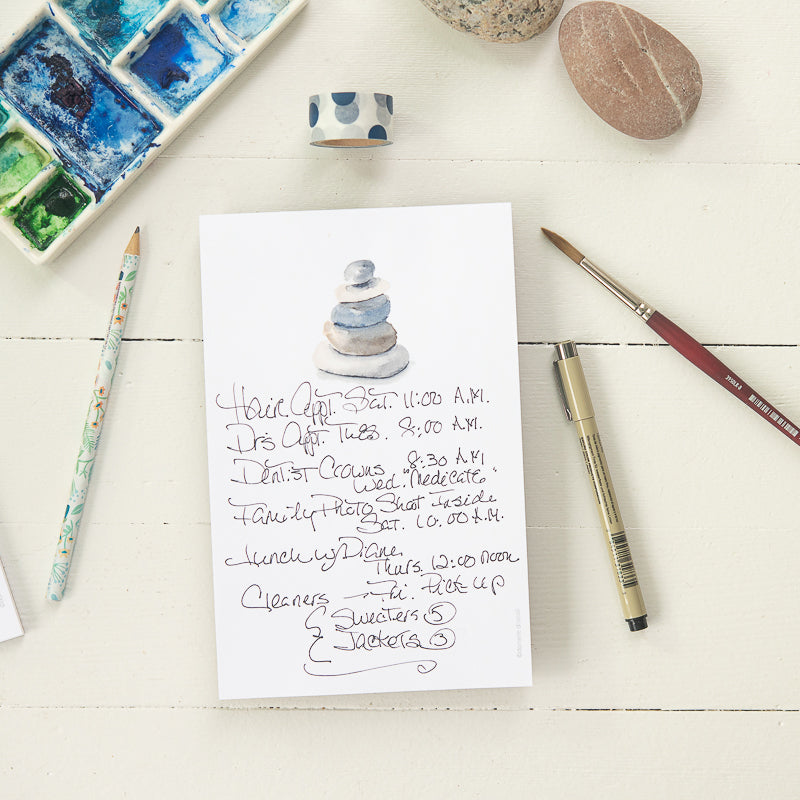 Hair Appt. Sat. 11:00 A.M.
Dr's Appt. Tues. 8:00 A.M.
Dentist Crowns 8:30 A.M.
Wed. "Medicate"
Family Photo Shoot Inside
Sat. 10:00 A.M.
Lunch w/ Diane
Thurs. 12:00 noon
Cleaners → Fri. Pick Up
Sweaters 5
Jackets 3